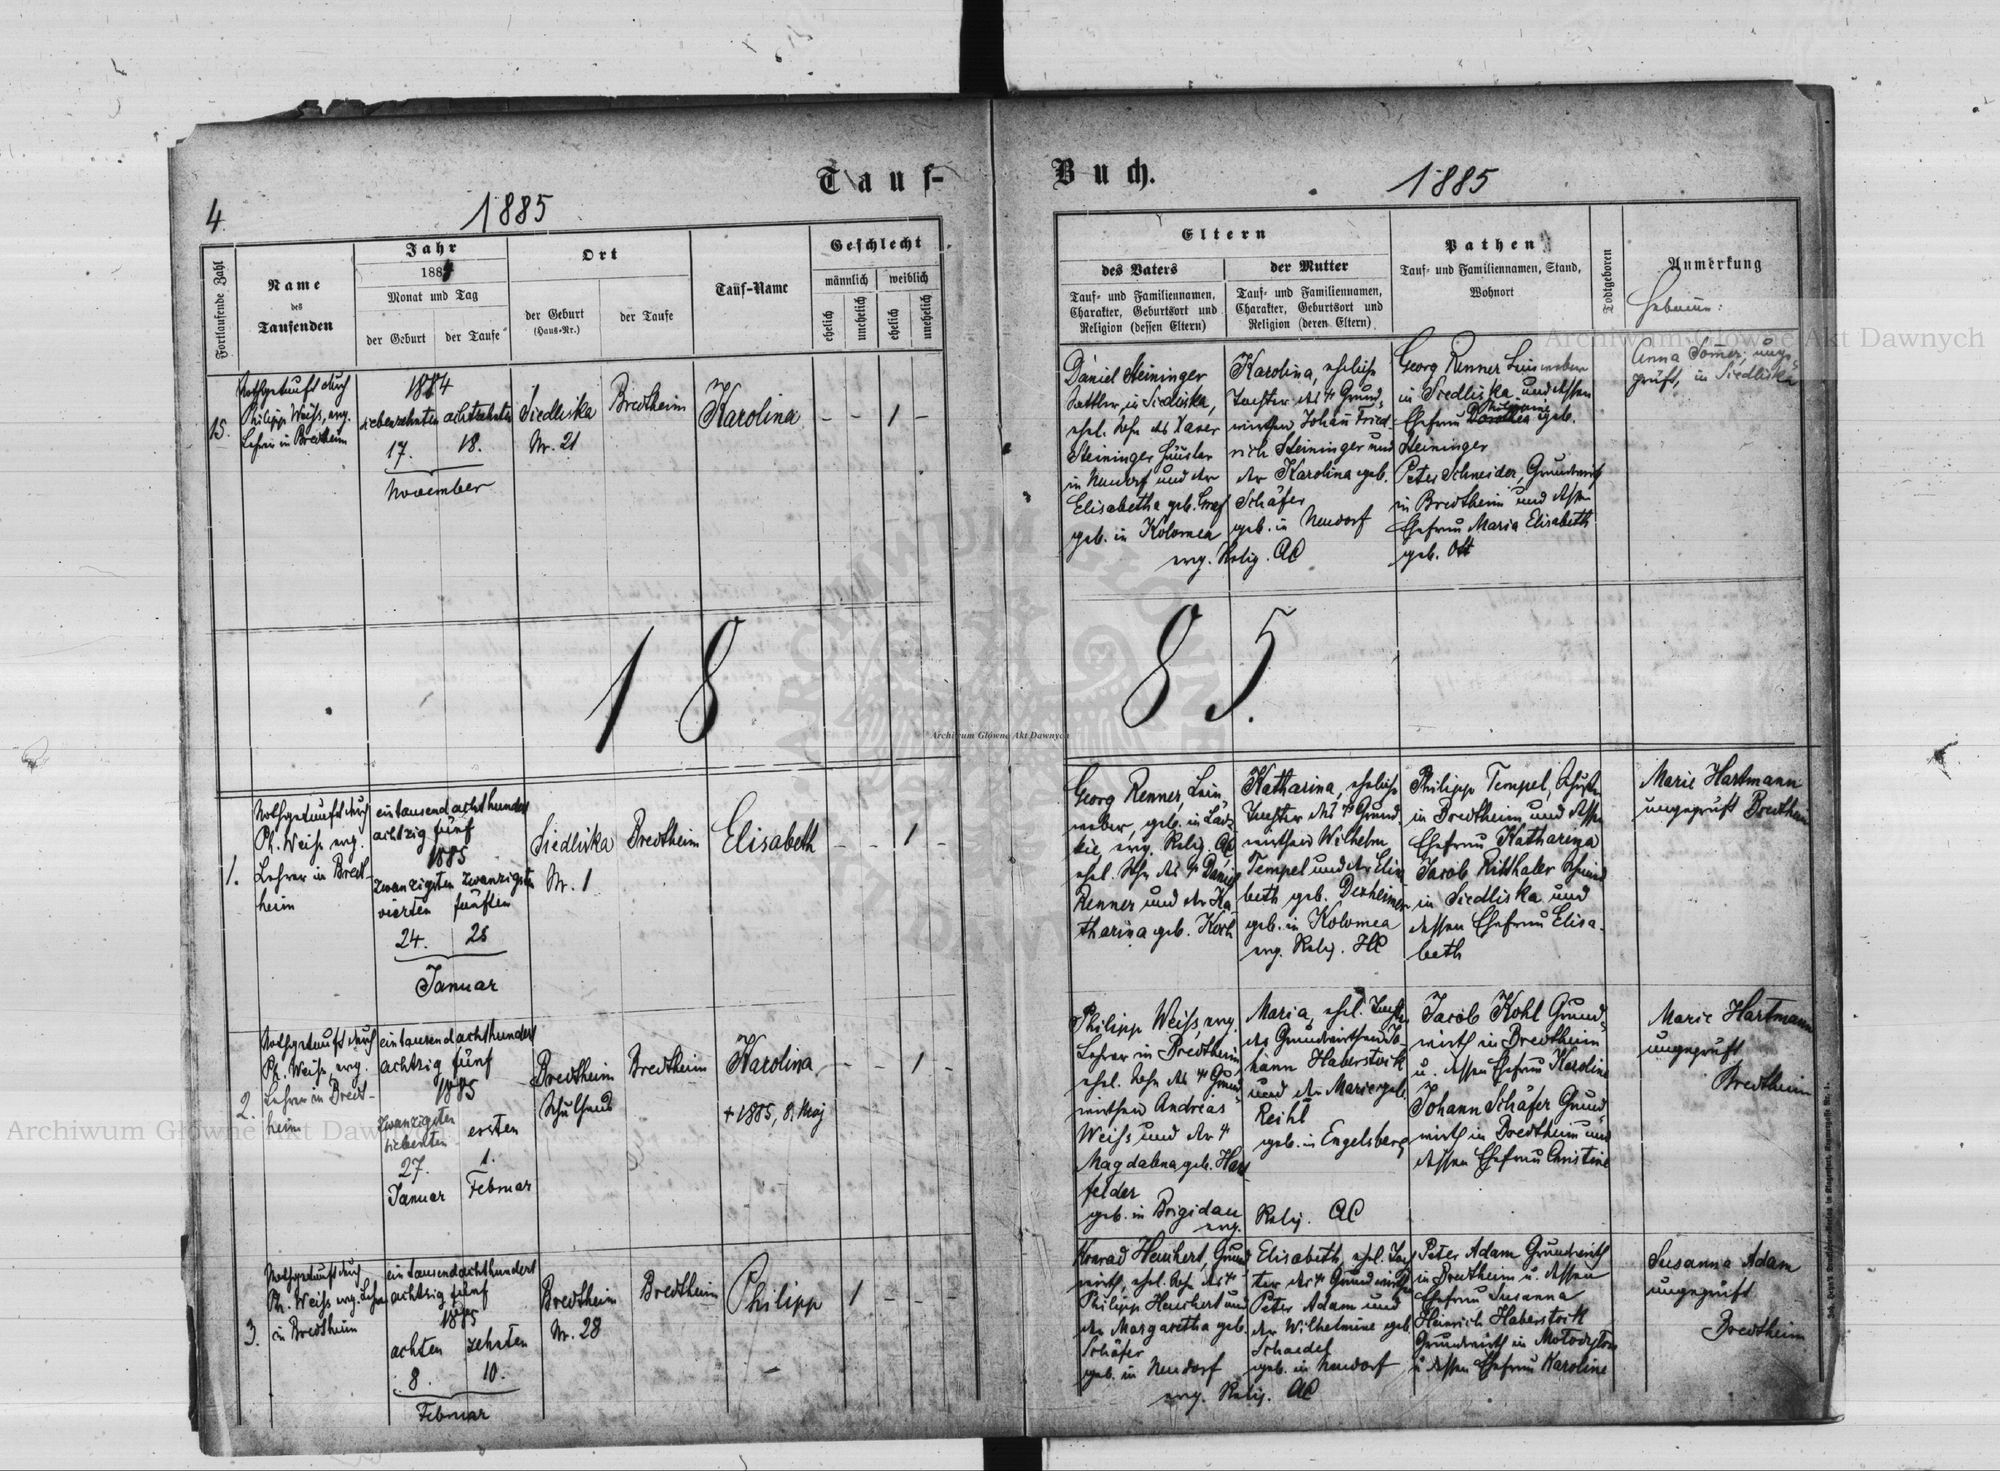 Tauf-
Buch.
4
1885
1885
Fortlaufende Zahl
Name
des
Taufenden
Jahr
1884
Monat und Tag
der Geburt
der Taufe
Ort
der Geburt
(Haus-Nr.)
der Taufe
Tauf-Name
Geschlecht
männlich
weiblich
ehelich
unehelich
ehelich
unehelich
Eltern
des Vaters
Tauf- und Familiennamen,
Charakter, Geburtsort und
Religion (dessen Eltern)
der Mutter
Tauf- und Familiennamen,
Charakter, Geburtsort und
Religion (deren Eltern)
Pathen
Tauf- und Familiennamen, Stand,
Wohnort
Todtgeboren
Anmerkung
Hebamme:
15.
Nothgetauft durch
Philipp Weiss, evg.
Lehrer in Bredtheim
1884
siebenzehnten achtzehnten
17. 18.
November
Siedliska
Nr. 21
Bredtheim
Karolina
- - 1 -
Daniel Steininger
Sattler in Siedliska,
ehel. Sohn des Xaver
Steininger Häusler
in Neudorf und der
Elisabetha geb. Graf
geb. in Kolomea
Karolina, eheliche
Tochter des + Grund-
wirthen Johann Fried-
rich Steininger und
der Karolina geb.
Schäfer
geb. in Neudorf
evg. Relig. AC
Georg Renner Leinweber
in Siedliska und dessen
Philippine
Ehefrau Dorothea geb.
Steininger
Peter Schneider, Grundwirth
in Bredtheim und dessen
Ehefrau Maria Elisabeth
geb. Ott
Anna Somer, unge-
prüft, in Siedliska
18
85.
1.
Nothgetauft durch
Ph. Weiss evg.
Lehrer in Bredt-
heim
eintausend achthundert
achtzig fünf
1885
zwanzigsten zwanzigsten
vierten fünften
24. 25
Januar
Siedliska
Nr. 1
Bredtheim
Elisabeth
- - 1 -
Georg Renner, Lein-
weber, geb. in
evg. Relig. AC
ehel. Sohn des + Daniel
Renner und der Ka-
tharina geb. Koch
Katharina, eheliche
Tochter des + Grund-
wirthen Wilhelm
Tempel und der Elisa-
beth geb. Dexheimer
geb. in Kolomea
evg. Relig. HC
Philipp Tempel, Schuster
in Bredtheim und dessen
Ehefrau Katharina
Jacob Ritthaler Schmied
in Siedliska und
dessen Ehefrau Elisa-
beth
Marie Hartmann
ungeprüft Bredtheim
2.
Nothgetauft durch
Ph. Weiss evg.
Lehrer in Bredt-
heim
eintausend achthundert
achtzig fünf
1885
zwanzigsten
siebenten ersten
27. 1.
Januar Februar
Bredtheim
Schulhaus
Bredtheim
Karolina
+ 1885, 8. Maj
- - 1 -
Philipp Weiss, evg.
Lehrer in Bredtheim
ehel. Sohn des + Grund-
wirthen Andreas
Weiss und der +
Magdalena geb. Hars-
felder
geb. in Brigidau
evg.
Maria, ehel. Tochter
des Grundwirthen Jo-
hann Haberstock
und der Marie geb.
Reihl
geb. in Engelsberg
Relig. AC
Jacob Kohl Grund-
wirth in Bredtheim
u. dessen Ehefrau Karoline
Johann Schäfer Grund-
wirth in Bredtheim und
dessen Ehefrau Christine
Marie Hartmann
ungeprüft
Bredtheim
3.
Nothgetauft durch
Ph. Weiss evg. Lehrer
in Bredtheim
eintausend achthundert
achtzig fünf
1885
achten zehnten
8. 10.
Februar
Bredtheim
Nr. 28
Bredtheim
Philipp
1 - - -
Konrad Heuchert, Grund-
wirth, ehel. Sohn des +
Philipp Heuchert und
der Margaretha geb.
Schäfer
geb. in Neudorf
Elisabeth, ehel. Toch-
ter des + Grundwirthen
Peter Adam und
der Wilhelmine geb.
Schaedel
geb. in Neudorf
evg. Relig. AC
Peter Adam Grundwirth
in Bredtheim u. dessen
Ehefrau Susanna
Heinrich Haberstock
Grundwirth in
u. dessen Ehefrau Karoline
Susanna Adam
ungeprüft
Bredtheim
Archiwum Główne Akt Dawnych
Archiwum Główne Akt Dawnych
Archiwum Główne Akt Dawnych